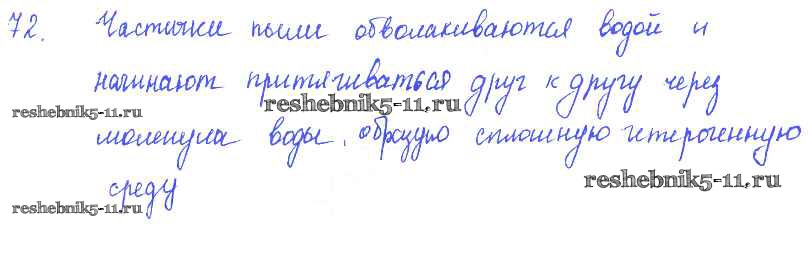 72. Частички пыли обволакиваются водой и
начинают притягиваться друг к другу через
reshebnik5-11.ru
reshebnik5-11.ru
молекула воды, образую сплошную гетерогенную
среду
reshebnik5-11.ru
reshebnik5-11.ru